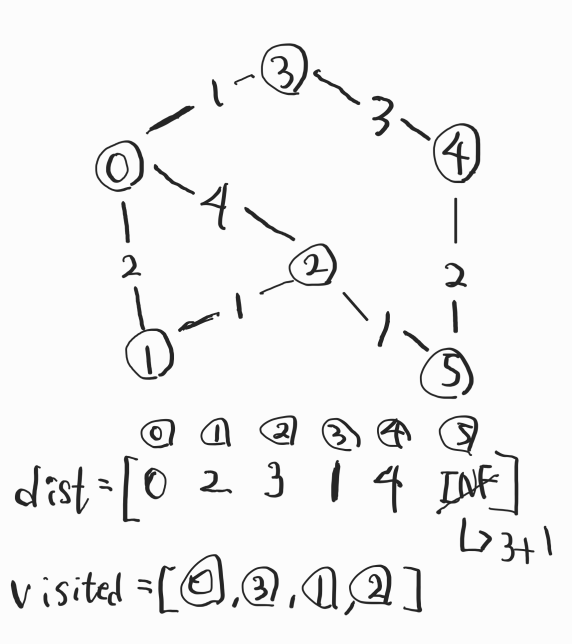 3
1
3
0
4
4
2
2
2
1
1
1
5
0 1 2 3 4 5
dist=[0 2 3 1 4 INF]
↳ 3+1
visited=[0,3,1,2]